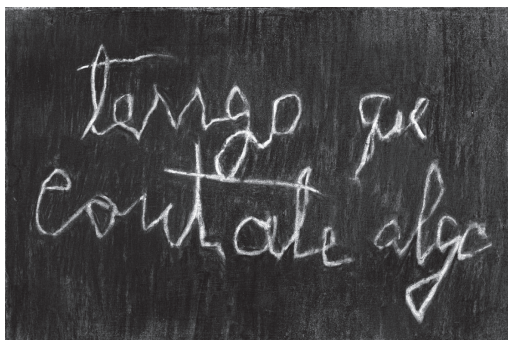 tengo que
contale algo